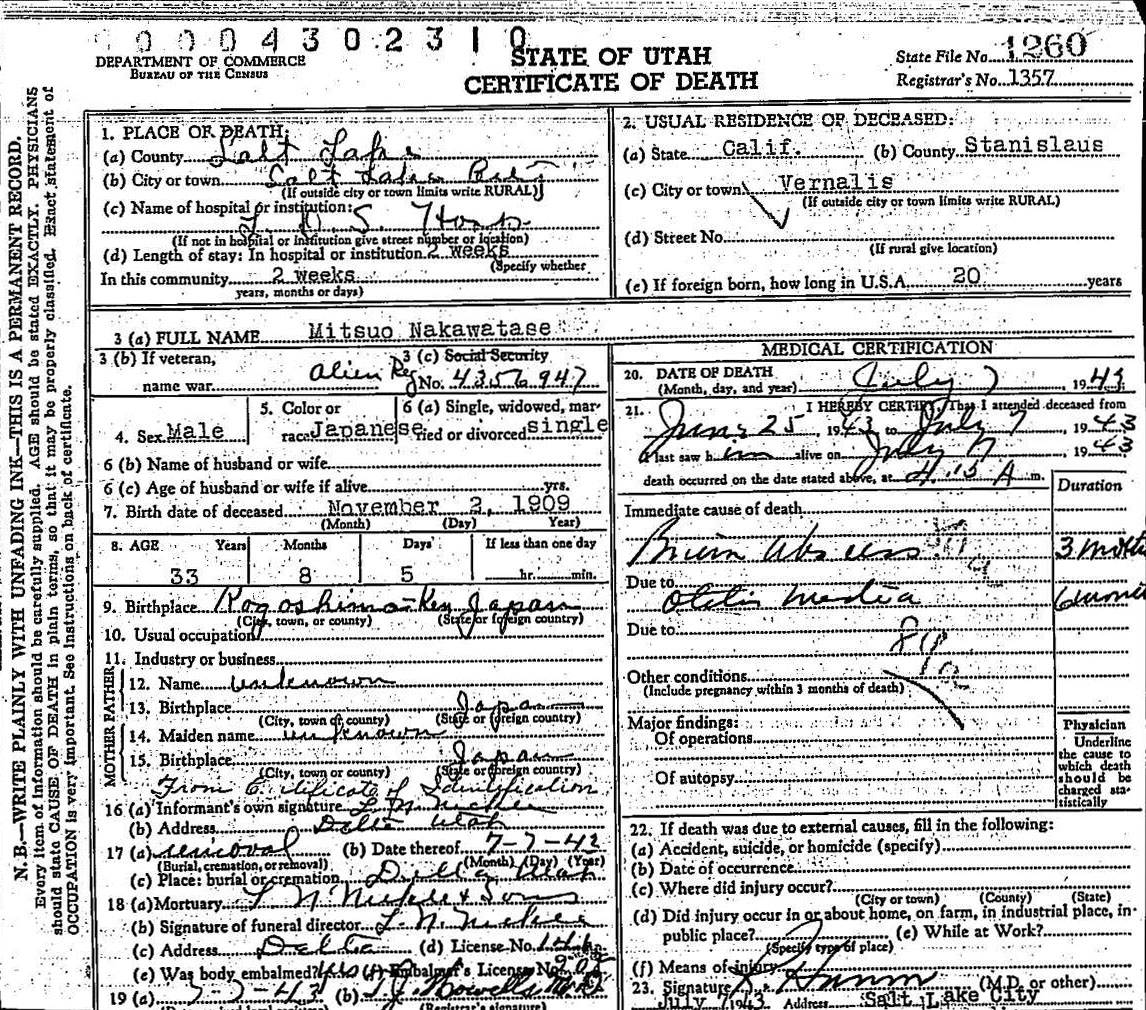 0 0 0 0 4 3 0 2 3 1 0
DEPARTMENT OF COMMERCE
BUREAU OF THE CENSUS
STATE OF UTAH
CERTIFICATE OF DEATH
State File No. 1260
Registrar's No. 1357
N. B.—WRITE PLAINLY WITH UNFADING INK—THIS IS A PERMANENT RECORD.
Every item of information should be carefully supplied. AGE should be stated EXACTLY. PHYSICIANS
should state CAUSE OF DEATH in plain terms, so that it may be properly classified. Exact statement of
OCCUPATION is very important. See instructions on back of certificate.
1. PLACE OF DEATH:
(a) County Salt Lake
(b) City or town Salt Lake City
(If outside city or town limits write RURAL)
(c) Name of hospital or institution:
L. D. S. Hosp.
(If not in hospital or institution give street number or location)
(d) Length of stay: In hospital or institution 2 weeks
(Specify whether
In this community 2 weeks
years, months or days)
2. USUAL RESIDENCE OF DECEASED:
(a) State Calif. (b) County Stanislaus
(c) City or town Vernalis
(If outside city or town limits write RURAL)
(d) Street No.
(If rural give location)
(e) If foreign born, how long in U.S.A. 20 years
3 (a) FULL NAME Mitsuo Nakawatase
3 (b) If veteran,
name war
3 (c) Social Security
Alien Reg No. 4356947
4. Sex Male
5. Color or
race Japanese
6 (a) Single, widowed, mar-
ried or divorced single
6 (b) Name of husband or wife
6 (c) Age of husband or wife if alive yrs.
7. Birth date of deceased November 2, 1909
(Month) (Day) Year)
8. AGE Years Months Days If less than one day
33 8 5 hr. min.
9. Birthplace Japan
(City, town, or county) (State or foreign country)
10. Usual occupation
11. Industry or business
FATHER
12. Name unknown
13. Birthplace Japan
(City, town or county) (State or foreign country)
MOTHER
14. Maiden name unknown
15. Birthplace Japan
(City, town or county) (State or foreign country)
From Certificate of Identification
16 (a) Informant's own signature L N
(b) Address Delta Utah
17 (a) removal (b) Date thereof 7-7-43
(Burial, cremation, or removal) (Month) (Day) (Year)
(c) Place: burial or cremation Delta Utah
18 (a) Mortuary & Sons
(b) Signature of funeral director L. N.
(c) Address Delta (d) License No.
(e) Was body embalmed? yes (f) Embalmer's License No.
19 (a) 7-7-43 (b)
(Registrar's signature)
MEDICAL CERTIFICATION
20. DATE OF DEATH
(Month, day, and year) July 7, 1943
21. I HEREBY CERTIFY, That I attended deceased from
June 25, 1943 to July 7, 1943
I last saw him alive on July 7, 1943
death occurred on the date stated above, at 4.15 A m.
Duration
Immediate cause of death
Brain Abscess 3 months
Due to
Otitis media 6 months
Due to
Other conditions
(Include pregnancy within 3 months of death)
Major findings:
Of operations
Of autopsy
Physician
Underline
the cause to
which death
should be
charged sta-
tistically
22. If death was due to external causes, fill in the following:
(a) Accident, suicide, or homicide (specify)
(b) Date of occurrence
(c) Where did injury occur?
(City or town) (County) (State)
(d) Did injury occur in or about home, on farm, in industrial place, in
public place? (e) While at Work?
(Specify type of place)
(f) Means of injury
23. Signature (M.D. or other)
July 7, 1943 Address Salt Lake City